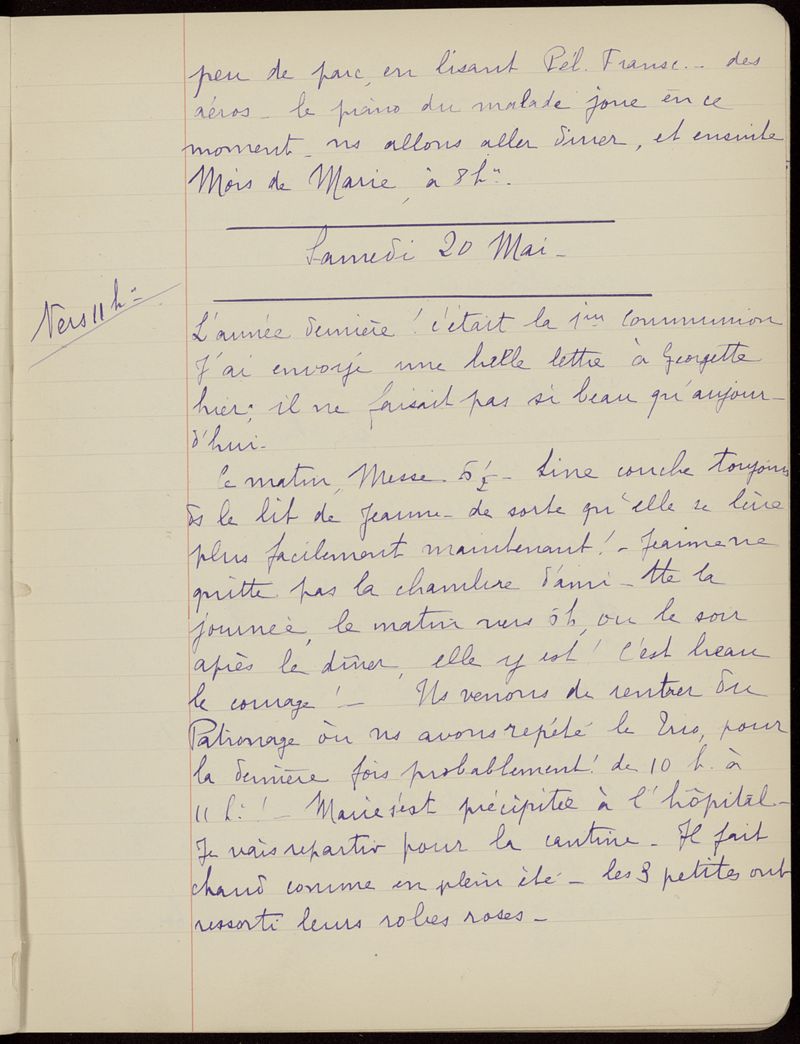 peu de parc, en lisant Pél. Franc... des
aéros - le piano du malade joue en ce
moment - ns allons aller dîner, et ensuite
Mois de Marie, à 8h".
Samedi 20 Mai -
Vers 11 h"
L'année dernière ! c'était la 1ère Communion
J'ai envoyé une belle lettre à Georgette
hier ; il ne faisait pas si beau qu'aujour-
d'hui.
Ce matin, Messe 5 1/2 - Line couche toujours
ds le lit de Jeanne - de sorte qu'elle se lève
plus facilement maintenant ! - Jeanne ne
quitte pas la chambre d'ami - tte la
journée, le matin vers 5h, ou le soir
après le dîner, elle y est ! C'est beau
le courage ! - Ns venons de rentrer du
Patronage où ns avons répété le Trio, pour
la dernière fois probablement ! de 10 h. à
11 h. ! - Marie s'est précipitée à l'hôpital -
Je vais repartir pour la cantine - Il fait
chaud comme en plein été - les 3 petites ont
ressorti leurs robes roses -